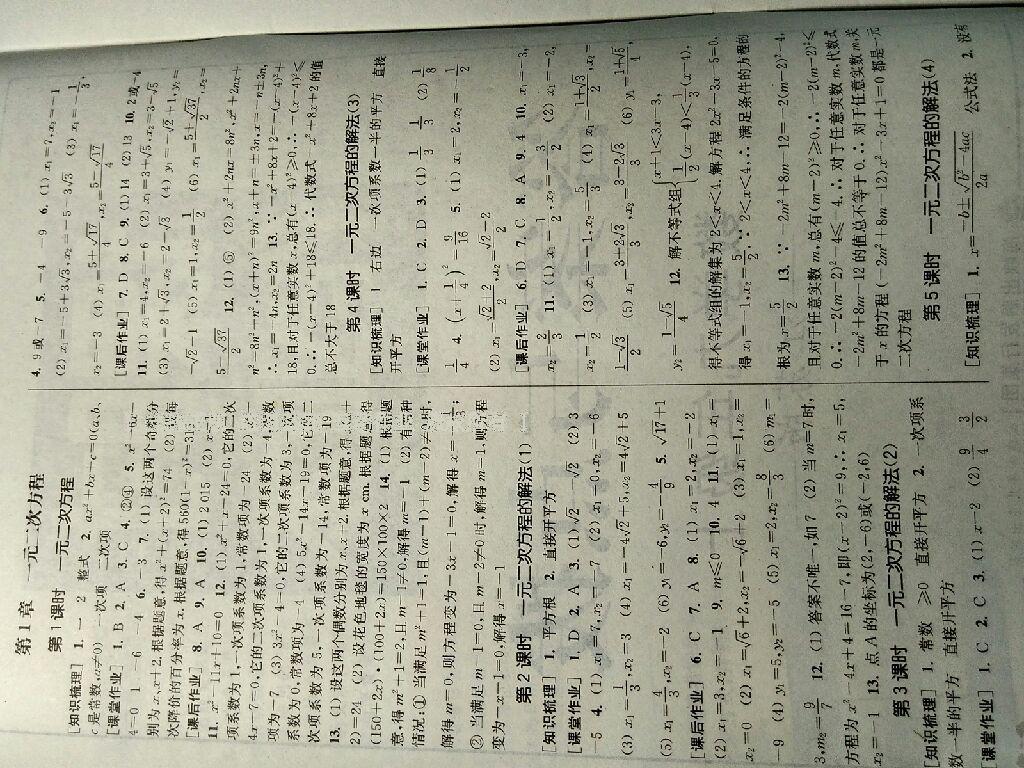 第 1 章 一元二次方程
第 1 课时 一元二次方程
[知识梳理] 1. 一 2 整式 2. ax²+bx+c=0(a、b、
c 是常数,a≠0) 一次项 二次项
[课堂作业] 1. B 2. A 3. C 4. ②④ 5. x²-6x-
4=0 1 -6 -4 6. -3 7. (1) 设这两个奇数分
别为 x、x+2, 根据题意,得 x²+(x+2)²=74 (2) 设每
次降价的百分率为 x. 根据题意,得 560(1-x)²=315
[课后作业] 8. A 9. A 10. (1) 2 015 (2)
11. x²-11x+10=0 12. (1) x²+x-24=0, 它的二次
项系数为 1, 一次项系数为 1, 常数项为 -24 (2) x²-
4x-7=0, 它的二次项系数为 1, 一次项系数为 -4, 常数
项为 -7 (3) 3x²-4=0, 它的二次项系数为 3, 一次项
系数为 0, 常数项为 -4 (4) 5x²-14x-19=0, 它的二
次项系数为 5, 一次项系数为 -14, 常数项为 -19
13. (1) 设这两个偶数分别为 x、x-2, 根据题意,得
2)=24 (2) 设花色地毯的宽度为 x cm. 根据题意,得
(150+2x)·(100+2x)=150×100×2 14. (1) 根据题
意,得 m²+1=2, 且 m-1≠0, 解得 m=-1 (2) 有两种
情况:① 当满足 m²+1=1, 且(m-1)+(m-2)≠0 时,
解得 m=0, 则方程变为 -3x-1=0, 解得 x=-1/3;
② 当满足 m-1=0, 且 m-2≠0 时, 解得 m=1, 则方程
变为 -x-1=0, 解得 x=-1
第 2 课时 一元二次方程的解法(1)
[知识梳理] 1. 平方根 2. 直接开平方
[课堂作业] 1. D 2. A 3. (1) √2 -√2 (2) 3
-5 4. (1) x₁=7, x₂=-7 (2) x₁=0, x₂=-6
(3) x₁=1/3, x₂=3 (4) x₁=-4√2+5, x₂=4√2+5
(5) x₁=4/3, x₂=-2 (6) y₁=6, y₂=-4/9 5. √17+1
[课后作业] 6. C 7. A 8. (1) x₁=2, x₂=-2
(2) x₁=3, x₂=-1 9. m≤0 10. 4 11. (1) x₁=
x₂=0 (2) x₁=√6+2, x₂=-√6+2 (3) x₁=1, x₂=
-9 (4) y₁=5, y₂=-5 (5) x₁=2, x₂=8/3 (6) m₁=
3, m₂=9/7 12. (1) 答案不唯一, 如 7 (2) 当 m=7 时,
方程为 x²-4x+4=16-7, 即 (x-2)²=9, ∴ x₁=5,
x₂=-1 13. 点 A 的坐标为(2,-6)或(-2,6)
第 3 课时 一元二次方程的解法(2)
[知识梳理] 1. 常数 ≥0 直接开平方 2. 一次项系
数一半的平方 直接开平方
[课堂作业] 1. C 2. C 3. (1) x-2 (2) 9/4 3/2
4. 9 或 -7 5. -4 -9 6. (1) x₁=7, x₂=-1
(2) x₁=-5+3√3, x₂=-5-3√3 (3) x₁=-1/3,
x₂=-3 (4) x₁=(5+√17)/4, x₂=(5-√17)/4
[课后作业] 7. D 8. C 9. (1) 14 (2) 13 10. 2 或 -4
11. (1) x₁=4, x₂=-6 (2) x₁=3+√5, x₂=3-√5
(3) x₁=2+√3, x₂=2-√3 (4) y₁=-√2+1, y₂=
-√2-1 (5) x₁=1, x₂=1/2 (6) x₁=(5+√37)/2, x₂=
(5-√37)/2 12. (1) ⑤ (2) x²+2nx=8n², x²+2nx+
n²=8n²+n², (x+n)²=9n², x+n=±3n, x=-n±3n,
∴ x₁=-4n, x₂=2n 13. ∵ -x²+8x+2=-(x-4)²+
18, 且对于任意实数 x, 总有(x-4)²≥0, ∴ -(x-4)²≤
0. ∴ -(x-4)²+18≤18. ∴ 代数式 -x²+8x+2 的值
总不大于 18
第 4 课时 一元二次方程的解法(3)
[知识梳理] 1 右边 一次项系数一半的平方 直接
开平方
[课堂作业] 1. C 2. D 3. (1) 1/3 1/3 (2) 1/8
1/4 4. (x+1/4)²=9/16 5. (1) x₁=2, x₂=-1/2
(2) x₁=(√2+2)/2, x₂=(√2-2)/2
[课后作业] 6. D 7. C 8. A 9. 4 10. x₁=-3,
x₂=2/3 11. (1) x₁=-1/2, x₂=-3/2 (2) x₁=-2,
x₂=1/2 (3) x₁=-1, x₂=5/3 (4) x₁=(1+√3)/2, x₂=
(1-√3)/2 (5) x₁=(3+2√3)/3, x₂=(3-2√3)/3 (6) y₁=(1+√5)/4,
y₂=(1-√5)/4 12. 解不等式组{x+1<3x-3, 1/2(x-4)<1/3(x-4),
得不等式组的解集为 2<x<4. 解方程 2x²-3x-5=0,
得 x₁=-1, x₂=5/2, ∵ 2<x<4, ∴ 满足条件的方程的
根为 x=5/2 13. ∵ -2m²+8m-12=-2(m-2)²-4,
且对于任意实数 m, 总有(m-2)²≥0, ∴ -2(m-2)²≤
0. ∴ -2(m-2)²-4≤-4. ∴ 对于任意实数 m, 代数式
-2m²+8m-12 的值总不等于 0. ∴ 对于任意实数 m, 关
于 x 的方程 (-2m²+8m-12)x²-3x+1=0 都是一元
二次方程
第 5 课时 一元二次方程的解法(4)
[知识梳理] 1. x=(-b±√(b²-4ac))/2a 公式法 2. 没有